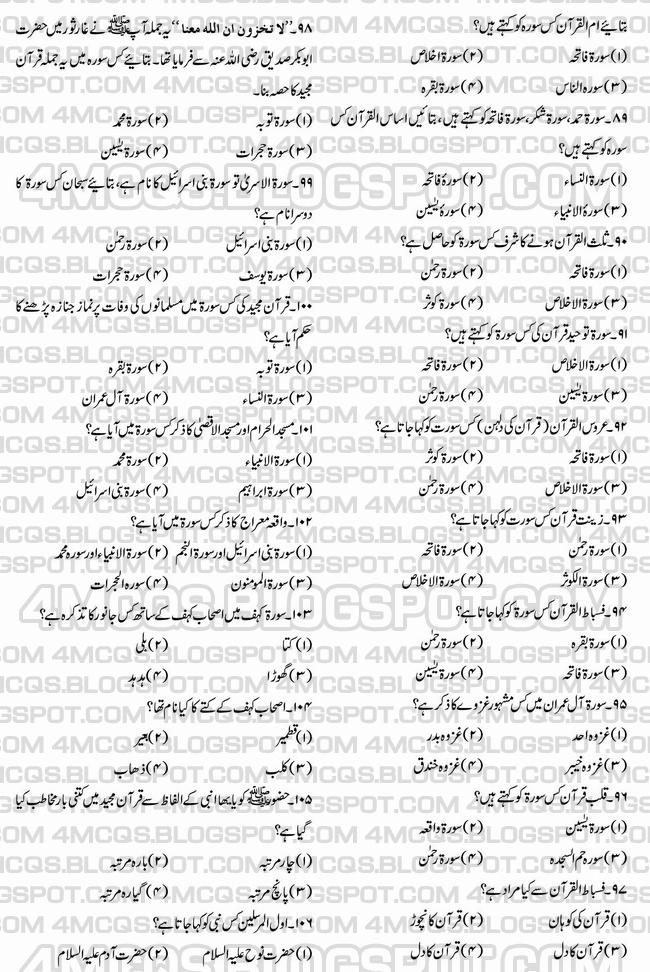 بتائیے ام القرآن کس سورہ کو کہتے ہیں؟
(۱) سورۃ فاتحہ (۲) سورۃ اخلاص
(۳) سورہ الناس (۴) سورۃ بقرہ
۸۹۔ سورۃ حمد، سورۃ شکر، سورۃ فاتحہ کو کہتے ہیں، بتائیں اساس القرآن کس
سورہ کو کہتے ہیں؟
(۱) سورۃ النساء (۲) سورۃ فاتحہ
(۳) سورۃ الانبیاء (۴) سورۃ یٰسین
۹۰۔ ثلث القرآن ہونے کا شرف کس سورۃ کو حاصل ہے؟
(۱) سورۃ فاتحہ (۲) سورۃ رحمٰن
(۳) سورۃ الاخلاص (۴) سورۃ کوثر
۹۱۔ سورۃ توحید قرآن کی کس سورۃ کو کہتے ہیں؟
(۱) سورۃ الاخلاص (۲) سورۃ فاتحہ
(۳) سورۃ یٰسین (۴) سورۃ رحمٰن
۹۲۔ عروس القرآن (قرآن کی دلہن) کس سورت کو کہا جاتا ہے؟
(۱) سورۃ فاتحہ (۲) سورۃ کوثر
(۳) سورۃ الاخلاص (۴) سورۃ رحمٰن
۹۳۔ زینت قرآن کس سورت کو کہا جاتا ہے؟
(۱) سورۃ رحمٰن (۲) سورۃ فاتحہ
(۳) سورۃ الکوثر (۴) سورۃ الاخلاص
۹۴۔ فسباط القرآن کس سورۃ کو کہا جاتا ہے؟
(۱) سورۃ بقرہ (۲) سورۃ رحمٰن
(۳) سورۃ فاتحہ (۴) سورۃ یٰسین
۹۵۔ سورۃ آل عمران میں کس مشہور غزوے کا ذکر ہے؟
(۱) غزوہ احد (۲) غزوہ بدر
(۳) غزوہ خیبر (۴) غزوہ خندق
۹۶۔ قلب قرآن کس سورۃ کو کہتے ہیں؟
(۱) سورۃ یٰسین (۲) سورۃ واقعہ
(۳) سورہ حم السجدہ (۴) سورۃ رحمٰن
۹۷۔ فسباط القرآن سے کیا مراد ہے؟
(۱) قرآن کی کوہان (۲) قرآن کا نچوڑ
(۳) قرآن کا دل (۴) قرآن کا دل
۹۸۔ ’’لا تخزون ان الله معنا‘‘ یہ جملہ آپ ﷺ نے غار ثور میں حضرت
ابوبکر صدیق رضی اللہ عنہ سے فرمایا تھا۔ بتائیے کس سورہ میں یہ جملہ قرآن
مجید کا حصہ بنا۔
(۱) سورۃ توبہ (۲) سورۃ محمد
(۳) سورۃ حجرات (۴) سورۃ یٰسین
۹۹۔ سورۃ الاسریٰ تو سورۃ بنی اسرائیل کا نام ہے، بتائیے سبحان کس سورۃ کا
دوسرا نام ہے؟
(۱) سورۃ بنی اسرائیل (۲) سورۃ رحمٰن
(۳) سورۃ یوسف (۴) سورۃ حجرات
۱۰۰۔ قرآن مجید کی کس سورۃ میں مسلمانوں کی وفات پر نماز جنازہ پڑھنے کا
حکم آیا ہے؟
(۱) سورۃ توبہ (۲) سورۃ بقرہ
(۳) سورۃ النساء (۴) سورۃ آل عمران
۱۰۱۔ مسجد الحرام اور مسجد الاقصیٰ کا ذکر کس سورۃ میں آیا ہے؟
(۱) سورۃ الانبیاء (۲) سورۃ محمد
(۳) سورۃ ابراہیم (۴) سورۃ بنی اسرائیل
۱۰۲۔ واقعہ معراج کا ذکر کس سورۃ میں آیا ہے؟
(۱) سورۃ بنی اسرائیل اور سورۃ النجم (۲) سورۃ الانبیاء اور سورہ محمد
(۳) سورۃ المومنون (۴) سورہ الحجرات
۱۰۳۔ سورۃ کہف میں اصحاب کہف کے ساتھ کس جانور کا تذکرہ ہے؟
(۱) کتا (۲) بلی
(۳) گھوڑا (۴) ہدہد
۱۰۴۔ اصحاب کہف کے کتے کا کیا نام تھا؟
(۱) قطمیر (۲) بعیر
(۳) کلب (۴) ذھاب
۱۰۵۔ حضور ﷺ کو یا یھا النبی کے الفاظ سے قرآن مجید میں کتنی بار مخاطب کیا
گیا ہے؟
(۱) چار مرتبہ (۲) بارہ مرتبہ
(۳) پانچ مرتبہ (۴) گیارہ مرتبہ
۱۰۶۔ اول المرسلین کس نبی کو کہا جاتا ہے؟
(۱) حضرت نوح علیہ السلام (۲) حضرت آدم علیہ السلام
4MCQS.BLOGSPOT.COM